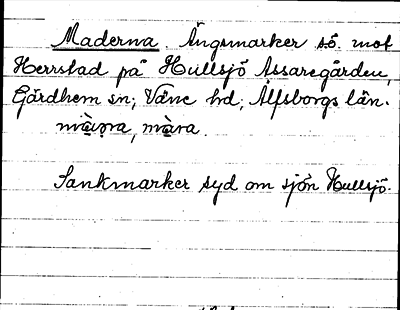 Maderna. Ängsmarker sö. mot
Herrstad på Hullsjö Assaregården,
Gärdhem sn; Väne hd; Älfsborgs län.
Sankmarker syd om sjön Hullsjö.